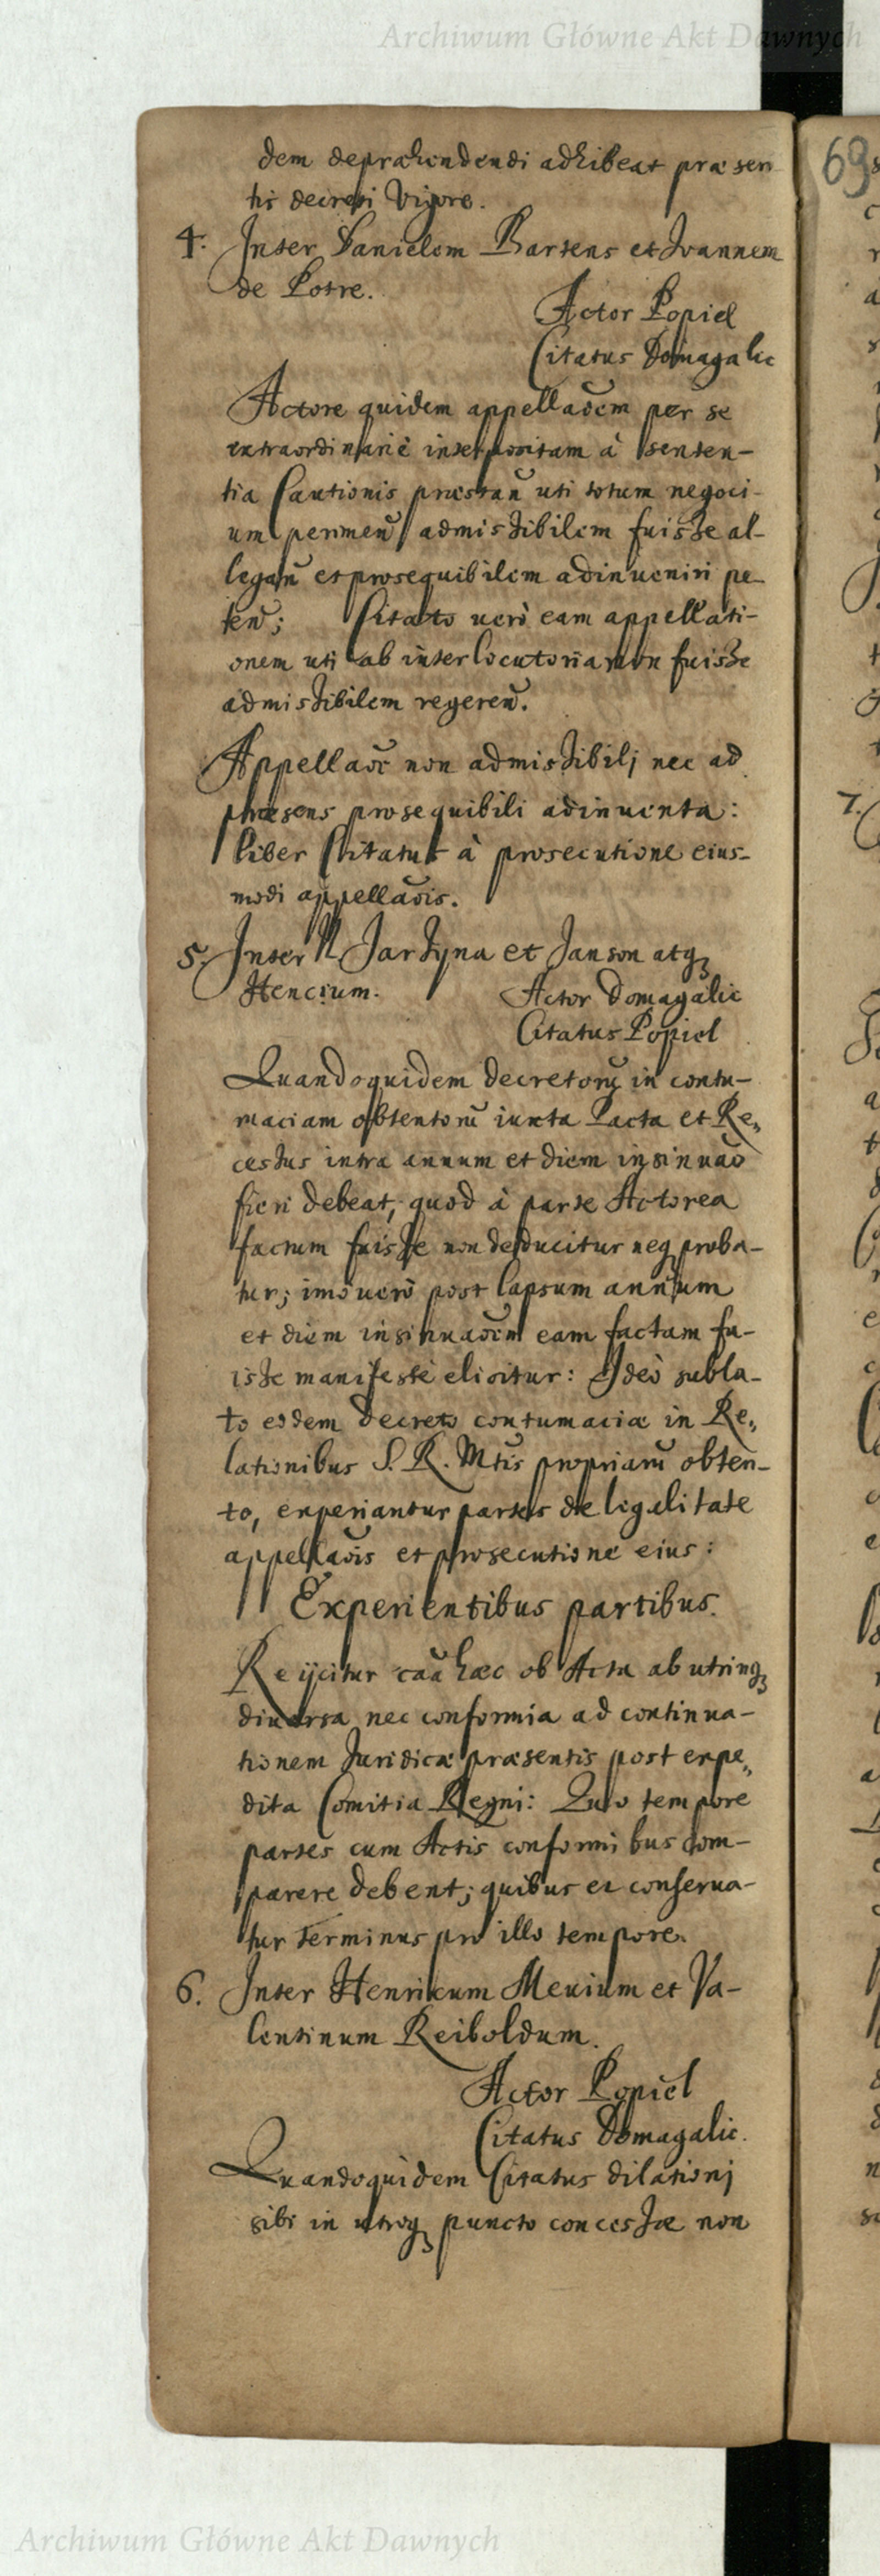 Archiwum Główne Akt Dawnych
69
dem depræhendendi adhibeat præsen
tis decreti vigore.
4. Inter Danielem Bartens et Ioannem
de Potre.
Actor Popiel
Citatus Domagalic
Actore quidem appellaõem per se
extraordinariè interpositam à senten-
tia Cautionis præstañ uti totum negoci-
um perimeñ admissibilem fuisse al-
legañ et prosequibilem adinveniri pe-
teñ; Citato verò eam appellati-
onem uti ab interlocutoria non fuisse
admissibilem regereñ.
Appellaõe non admissibili nec ad
præsens prosequibili adinventa:
liber Citatus à prosecutione eius-
modi appellaõis.
5. Inter Jartyna et Janson atq
Hencium.
Actor Domagalic
Citatus Popiel
Quandoquidem decretorũ in contu-
maciam obtentorũ iuxta Pacta et Re„
cessus intra annum et diem insinuaõ
fieri debeat, quod à parte Actorea
factum fuisse non deducitur neq proba-
tur; imò verò post lapsum annum
et diem insinuaõem eam factam fu-
isse manifestè elicitur: Ideò subla-
to eodem decreto contumaciæ in Re„
lationibus S. R. Mtis propriarũ obten-
to, experiantur partes de legalitate
appellaõis et prosecutione eius:
Experientibus partibus.
Reijcitur caã hæc ob Acta ab utrinq
diversa nec conformia ad continua-
tionem Juridicæ præsentis post expe„
dita Comitia Regni: Quo tempore
partes cum Actis conformibus com-
parere debent; quibus et conserva-
tur terminus pro illo tempore.
6. Inter Henricum Mevium et Va-
lentinum Reiboldum.
Actor Popiel
Citatus Domagalic.
Quandoquidem Citatus dilationi
sibi in utroq puncto concessæ non
7.
Archiwum Główne Akt Dawnych